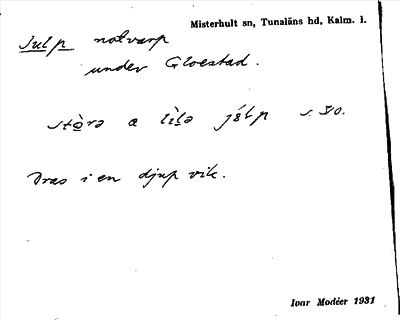 Misterhult sn, Tunaläns hd, Kalm. l.
Julp notvarp
under Gloestad.
a s. Vo.
Dras i en djup vik.
Ivar Modéer 1931